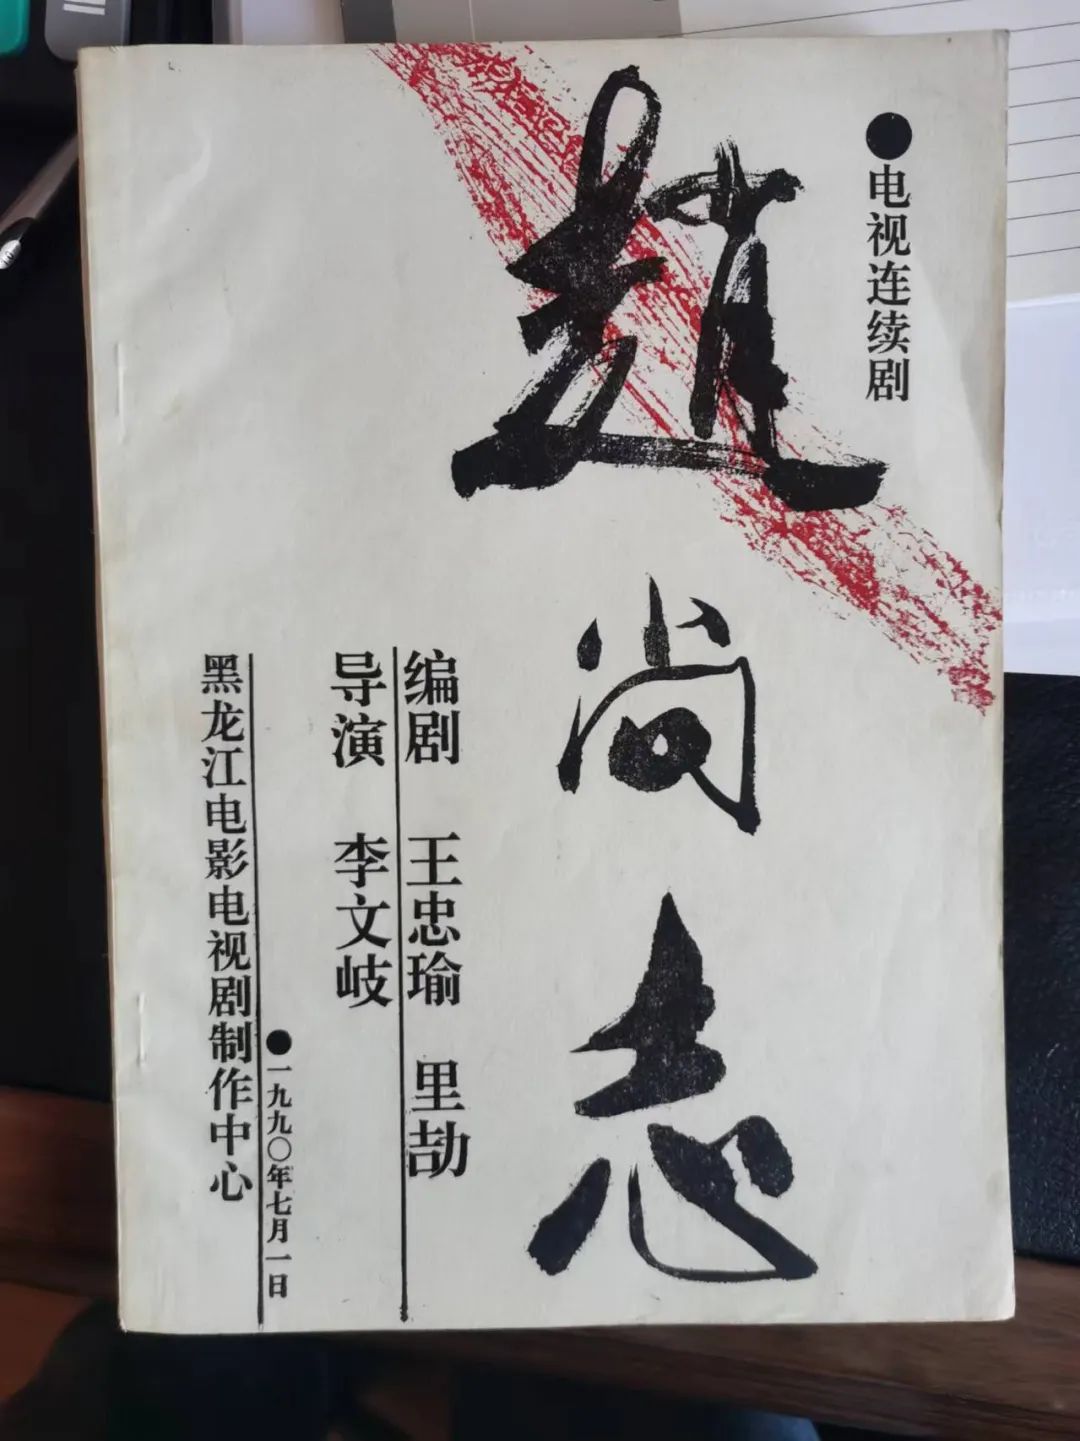 ●电视连续剧
趙尚志
编剧 王忠瑜 里劼
导演 李文岐
●一九九〇年七月一日
黑龙江电影电视剧制作中心